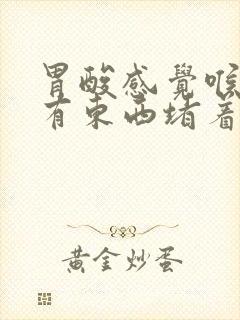 胃酸感覺喉
有東西堵着
黃金炒蛋